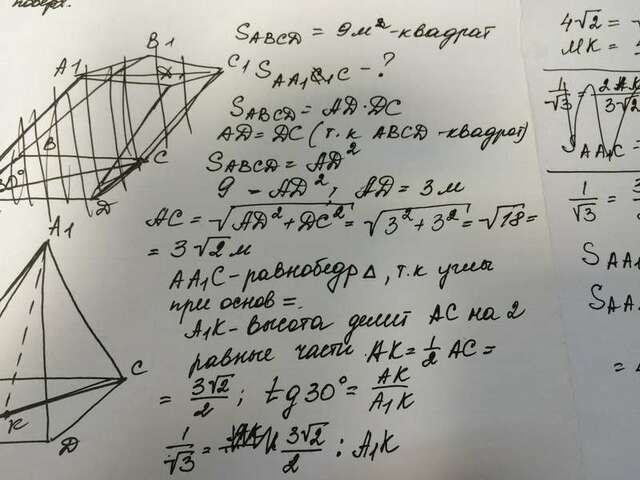 поверх.
S ABCD = 9м² - квадрат
S AA1C1C - ?
S ABCD = AD · DC
AD = DC (т.к ABCD - квадрат)
S ABCD = AD²
9 - AD²; AD = 3 м
AC = √AD² + DC² = √3² + 3² = √18 =
= 3√2 м
AA1C - равнобедр △, т.к углы
при основ =.
A1K - высота делит AC на 2
равные части AK = 1/2 AC =
= 3√2/2; tg 30° = AK/A1K
1/√3 = 3√2/2 : A1K
B1
A1
C1
B
30°
C
D
A1
C
K
D
4√2 =
MK =
4/√3 =
3√2
S AA1C =
1/√3 =
S AA1
S AA
=